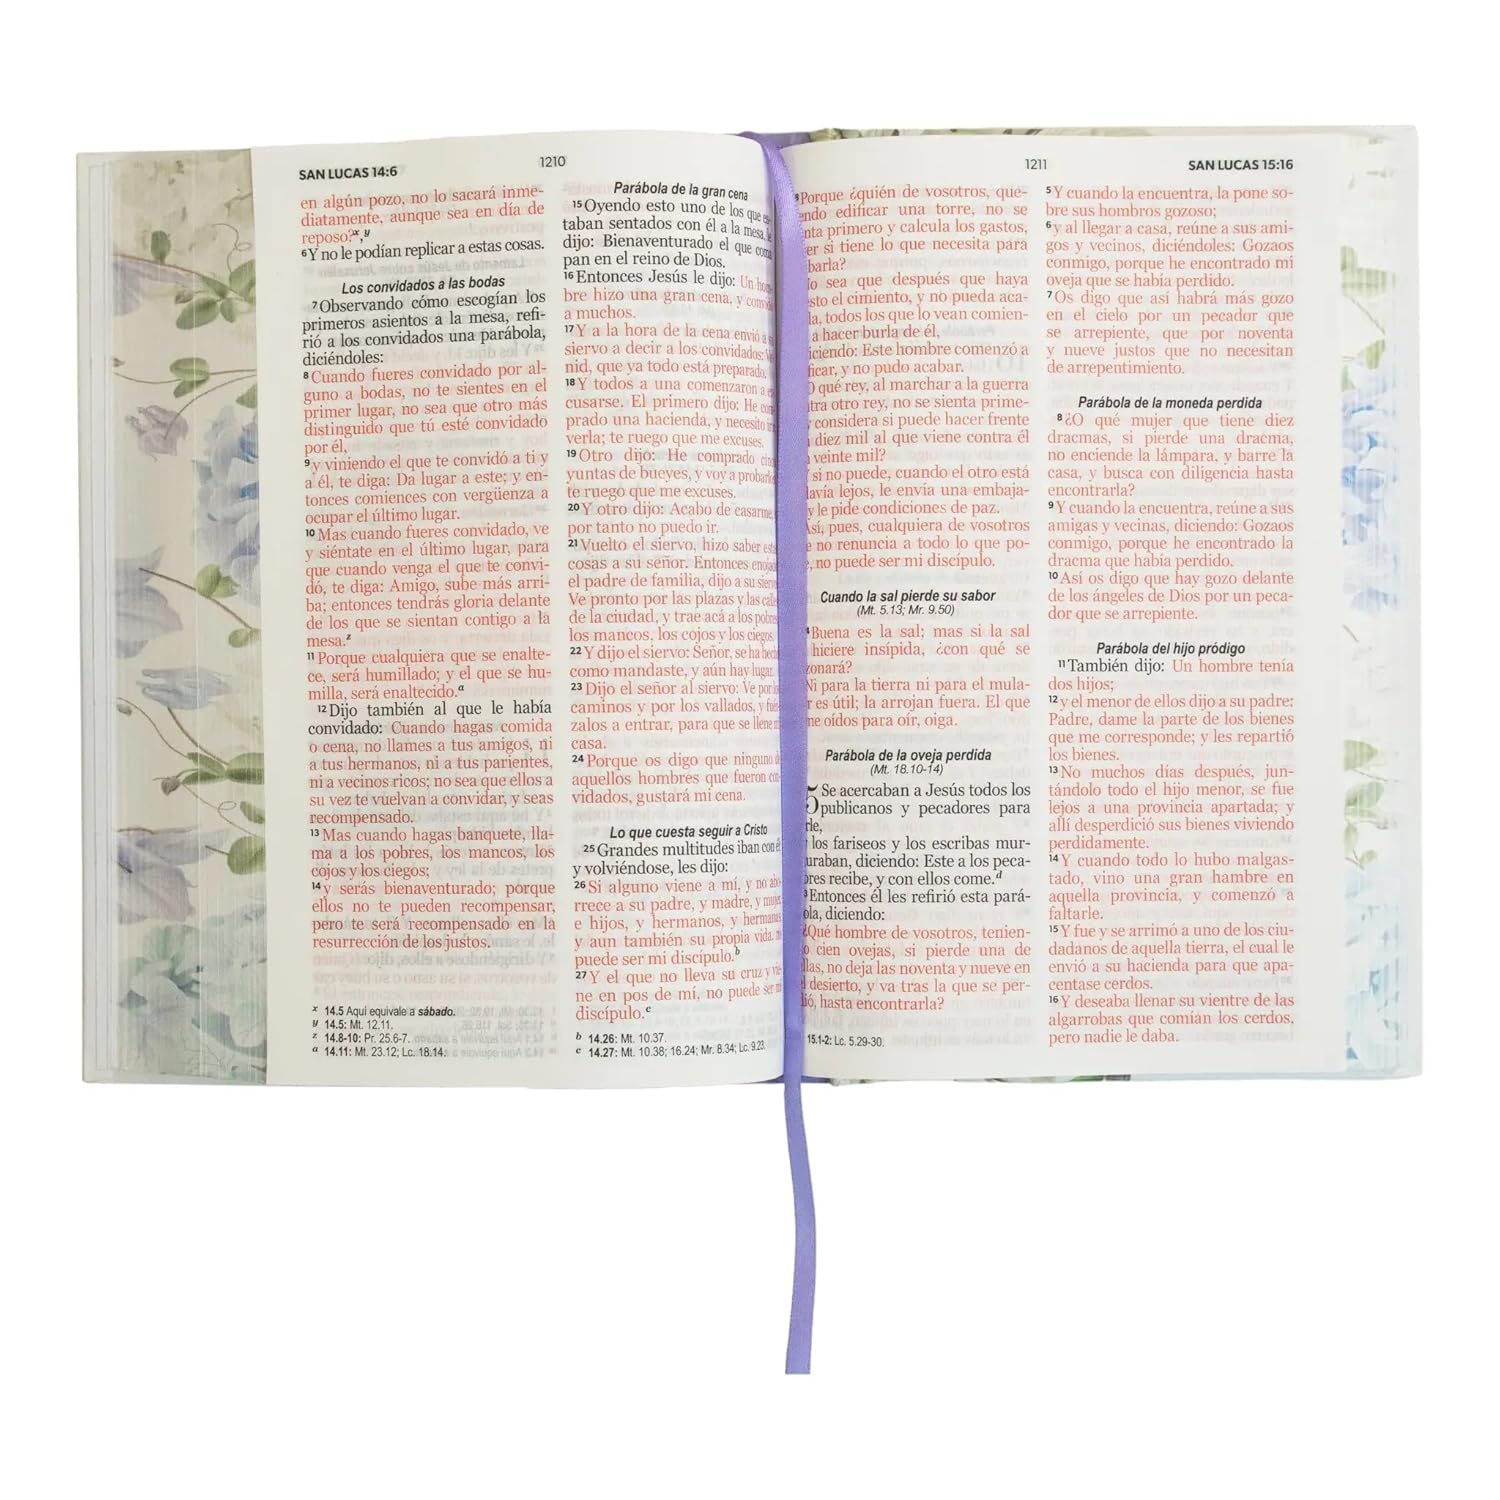 SAN LUCAS 14:6
1210
en algún pozo, no lo sacará inme-
diatamente, aunque sea en día de
reposo?x,y
6 Y no le podían replicar a estas cosas.
Los convidados a las bodas
7 Observando cómo escogían los
primeros asientos a la mesa, refi-
rió a los convidados una parábola,
diciéndoles:
8 Cuando fueres convidado por al-
guno a bodas, no te sientes en el
primer lugar, no sea que otro más
distinguido que tú esté convidado
por él,
9 y viniendo el que te convidó a ti y
a él, te diga: Da lugar a este; y en-
tonces comiences con vergüenza a
ocupar el último lugar.
10 Mas cuando fueres convidado, ve
y siéntate en el último lugar, para
que cuando venga el que te convi-
dó, te diga: Amigo, sube más arri-
ba; entonces tendrás gloria delante
de los que se sientan contigo a la
mesa.z
11 Porque cualquiera que se enalte-
ce, será humillado; y el que se hu-
milla, será enaltecido.a
12 Dijo también al que le había
convidado: Cuando hagas comida
o cena, no llames a tus amigos, ni
a tus hermanos, ni a tus parientes,
ni a vecinos ricos; no sea que ellos a
su vez te vuelvan a convidar, y seas
recompensado.
13 Mas cuando hagas banquete, lla-
ma a los pobres, los mancos, los
cojos y los ciegos;
14 y serás bienaventurado; porque
ellos no te pueden recompensar,
pero te será recompensado en la
resurrección de los justos.
x 14.5 Aquí equivale a sábado.
y 14.5: Mt. 12.11.
z 14.8-10: Pr. 25.6-7.
a 14.11: Mt. 23.12; Lc. 18.14.
Parábola de la gran cena
15 Oyendo esto uno de los que es-
taban sentados con él a la mesa, le
dijo: Bienaventurado el que coma
pan en el reino de Dios.
16 Entonces Jesús le dijo: Un hom-
bre hizo una gran cena, y convidó
a muchos.
17 Y a la hora de la cena envió a su
siervo a decir a los convidados: Ve-
nid, que ya todo está preparado.
18 Y todos a una comenzaron a ex-
cusarse. El primero dijo: He com-
prado una hacienda, y necesito ir a
verla; te ruego que me excuses.
19 Otro dijo: He comprado cinco
yuntas de bueyes, y voy a probarlos;
te ruego que me excuses.
20 Y otro dijo: Acabo de casarme,
por tanto no puedo ir.
21 Vuelto el siervo, hizo saber estas
cosas a su señor. Entonces enojado
el padre de familia, dijo a su siervo:
Ve pronto por las plazas y las calles
de la ciudad, y trae acá a los pobres,
los mancos, los cojos y los ciegos.
22 Y dijo el siervo: Señor, se ha hecho
como mandaste, y aún hay lugar.
23 Dijo el señor al siervo: Ve por los
caminos y por los vallados, y fuér-
zalos a entrar, para que se llene mi
casa.
24 Porque os digo que ninguno de
aquellos hombres que fueron con-
vidados, gustará mi cena.
Lo que cuesta seguir a Cristo
25 Grandes multitudes iban con él;
y volviéndose, les dijo:
26 Si alguno viene a mí, y no abo-
rrece a su padre, y madre, y mujer,
e hijos, y hermanos, y hermanas,
y aun también su propia vida, no
puede ser mi discípulo.b
27 Y el que no lleva su cruz y vie-
ne en pos de mí, no puede ser mi
discípulo.c
b 14.26: Mt. 10.37.
c 14.27: Mt. 10.38; 16.24; Mr. 8.34; Lc. 9.23.
1211
SAN LUCAS 15:16
Porque ¿quién de vosotros, que-
endo edificar una torre, no se
nta primero y calcula los gastos,
er si tiene lo que necesita para
barla?
o sea que después que haya
sto el cimiento, y no pueda aca-
la, todos los que lo vean comien-
a hacer burla de él,
iciendo: Este hombre comenzó a
ficar, y no pudo acabar.
O qué rey, al marchar a la guerra
tra otro rey, no se sienta prime-
y considera si puede hacer frente
diez mil al que viene contra él
veinte mil?
si no puede, cuando el otro está
lavía lejos, le envía una embaja-
y le pide condiciones de paz.
Así, pues, cualquiera de vosotros
e no renuncia a todo lo que po-
, no puede ser mi discípulo.
Cuando la sal pierde su sabor
(Mt. 5.13; Mr. 9.50)
Buena es la sal; mas si la sal
hiciere insípida, ¿con qué se
zonará?
Ni para la tierra ni para el mula-
r es útil; la arrojan fuera. El que
ne oídos para oír, oiga.
Parábola de la oveja perdida
(Mt. 18.10-14)
5 Se acercaban a Jesús todos los
publicanos y pecadores para
rle,
los fariseos y los escribas mur-
uraban, diciendo: Este a los peca-
ores recibe, y con ellos come.d
3 Entonces él les refirió esta pará-
ola, diciendo:
¿Qué hombre de vosotros, tenien-
o cien ovejas, si pierde una de
llas, no deja las noventa y nueve en
l desierto, y va tras la que se per-
dió, hasta encontrarla?
15.1-2: Lc. 5.29-30.
5 Y cuando la encuentra, la pone so-
bre sus hombros gozoso;
6 y al llegar a casa, reúne a sus ami-
gos y vecinos, diciéndoles: Gozaos
conmigo, porque he encontrado mi
oveja que se había perdido.
7 Os digo que así habrá más gozo
en el cielo por un pecador que
se arrepiente, que por noventa
y nueve justos que no necesitan
de arrepentimiento.
Parábola de la moneda perdida
8 ¿O qué mujer que tiene diez
dracmas, si pierde una dracma,
no enciende la lámpara, y barre la
casa, y busca con diligencia hasta
encontrarla?
9 Y cuando la encuentra, reúne a sus
amigas y vecinas, diciendo: Gozaos
conmigo, porque he encontrado la
dracma que había perdido.
10 Así os digo que hay gozo delante
de los ángeles de Dios por un peca-
dor que se arrepiente.
Parábola del hijo pródigo
11 También dijo: Un hombre tenía
dos hijos;
12 y el menor de ellos dijo a su padre:
Padre, dame la parte de los bienes
que me corresponde; y les repartió
los bienes.
13 No muchos días después, jun-
tándolo todo el hijo menor, se fue
lejos a una provincia apartada; y
allí desperdició sus bienes viviendo
perdidamente.
14 Y cuando todo lo hubo malgas-
tado, vino una gran hambre en
aquella provincia, y comenzó a
faltarle.
15 Y fue y se arrimó a uno de los ciu-
dadanos de aquella tierra, el cual le
envió a su hacienda para que apa-
centase cerdos.
16 Y deseaba llenar su vientre de las
algarrobas que comían los cerdos,
pero nadie le daba.